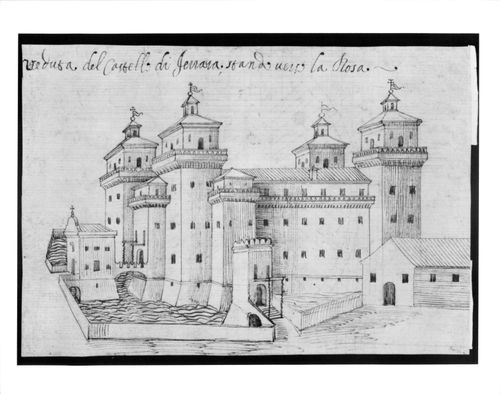 Veduta del Castell: di Ferrara, stand: vers: la Rosa.